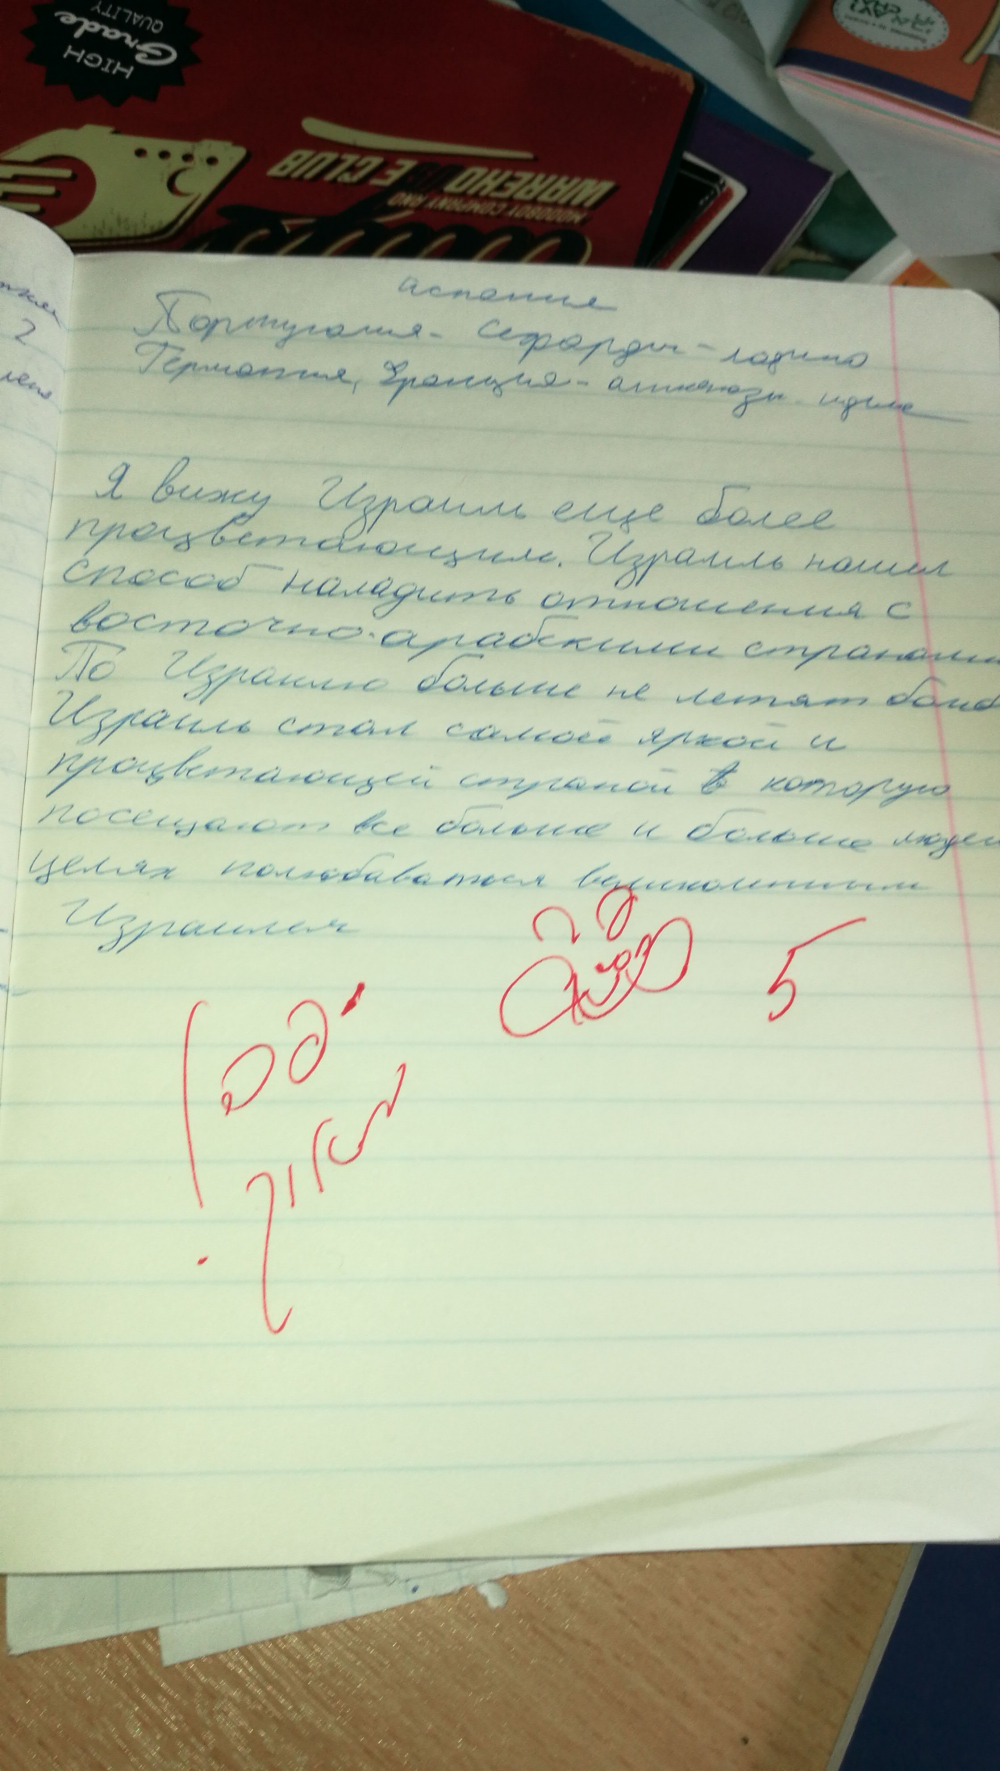 HIGH
Grade
QUALITY
WAREHO E CLUB
MOODBOY COMPANY AND
2
испания
Португалия - сефарды - ладино
Германия, Франция - ашкенази - идиш
Я вижу Израиль еще более
процветающим. Израиль нашел
способ наладить отношения с
восточно-арабскими странами
По Израилю больше не летят бомб
Израиль стал самой яркой и
процветающей страной в которую
посещают все больше и больше люди
целях полюбоваться великолепным
Израилем
5